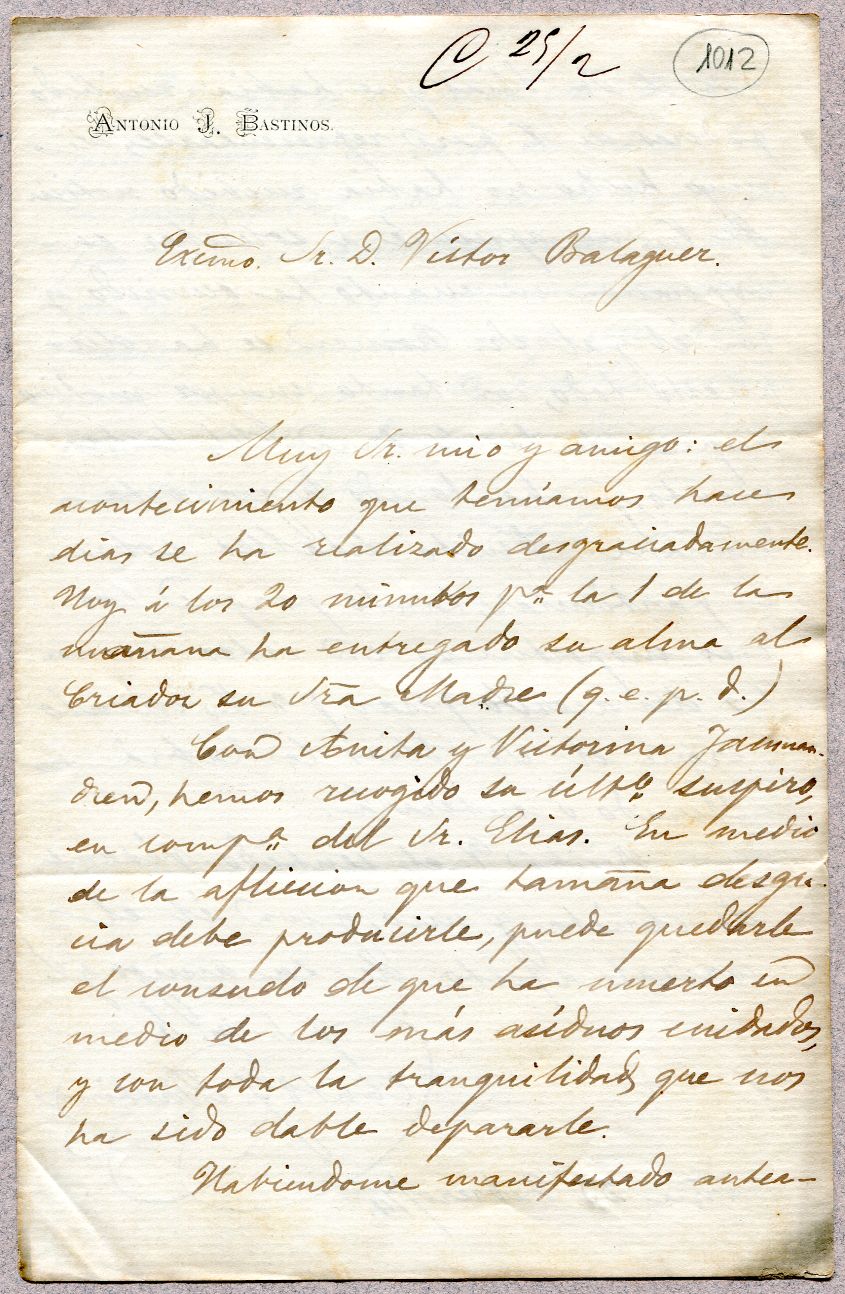 C 25/2
1012
ANTONIO J. BASTINOS.
Excmo. Sr. D. Víctor Balaguer.
Muy Sr. mio y amigo: el
acontecimiento que temiamos hace
dias se ha realizado desgraciadamente.
Hoy á los 20 minutos pª la 1 de la
mañana ha entregado su alma al
Criador su Sra Madre (q. e. p. d.)
Con Anita y Victorina Jaumandreu,
hemos recogido su últº suspiro,
en compª del Sr. Elias. En medio
de la afliccion que tamaña desgracia
debe producirle, puede quedarle
el consuelo de que ha muerto en
medio de los más asíduos cuidados,
y con toda la tranquilidad que nos
ha sido dable depararle.
Habiendome manifestado antea-